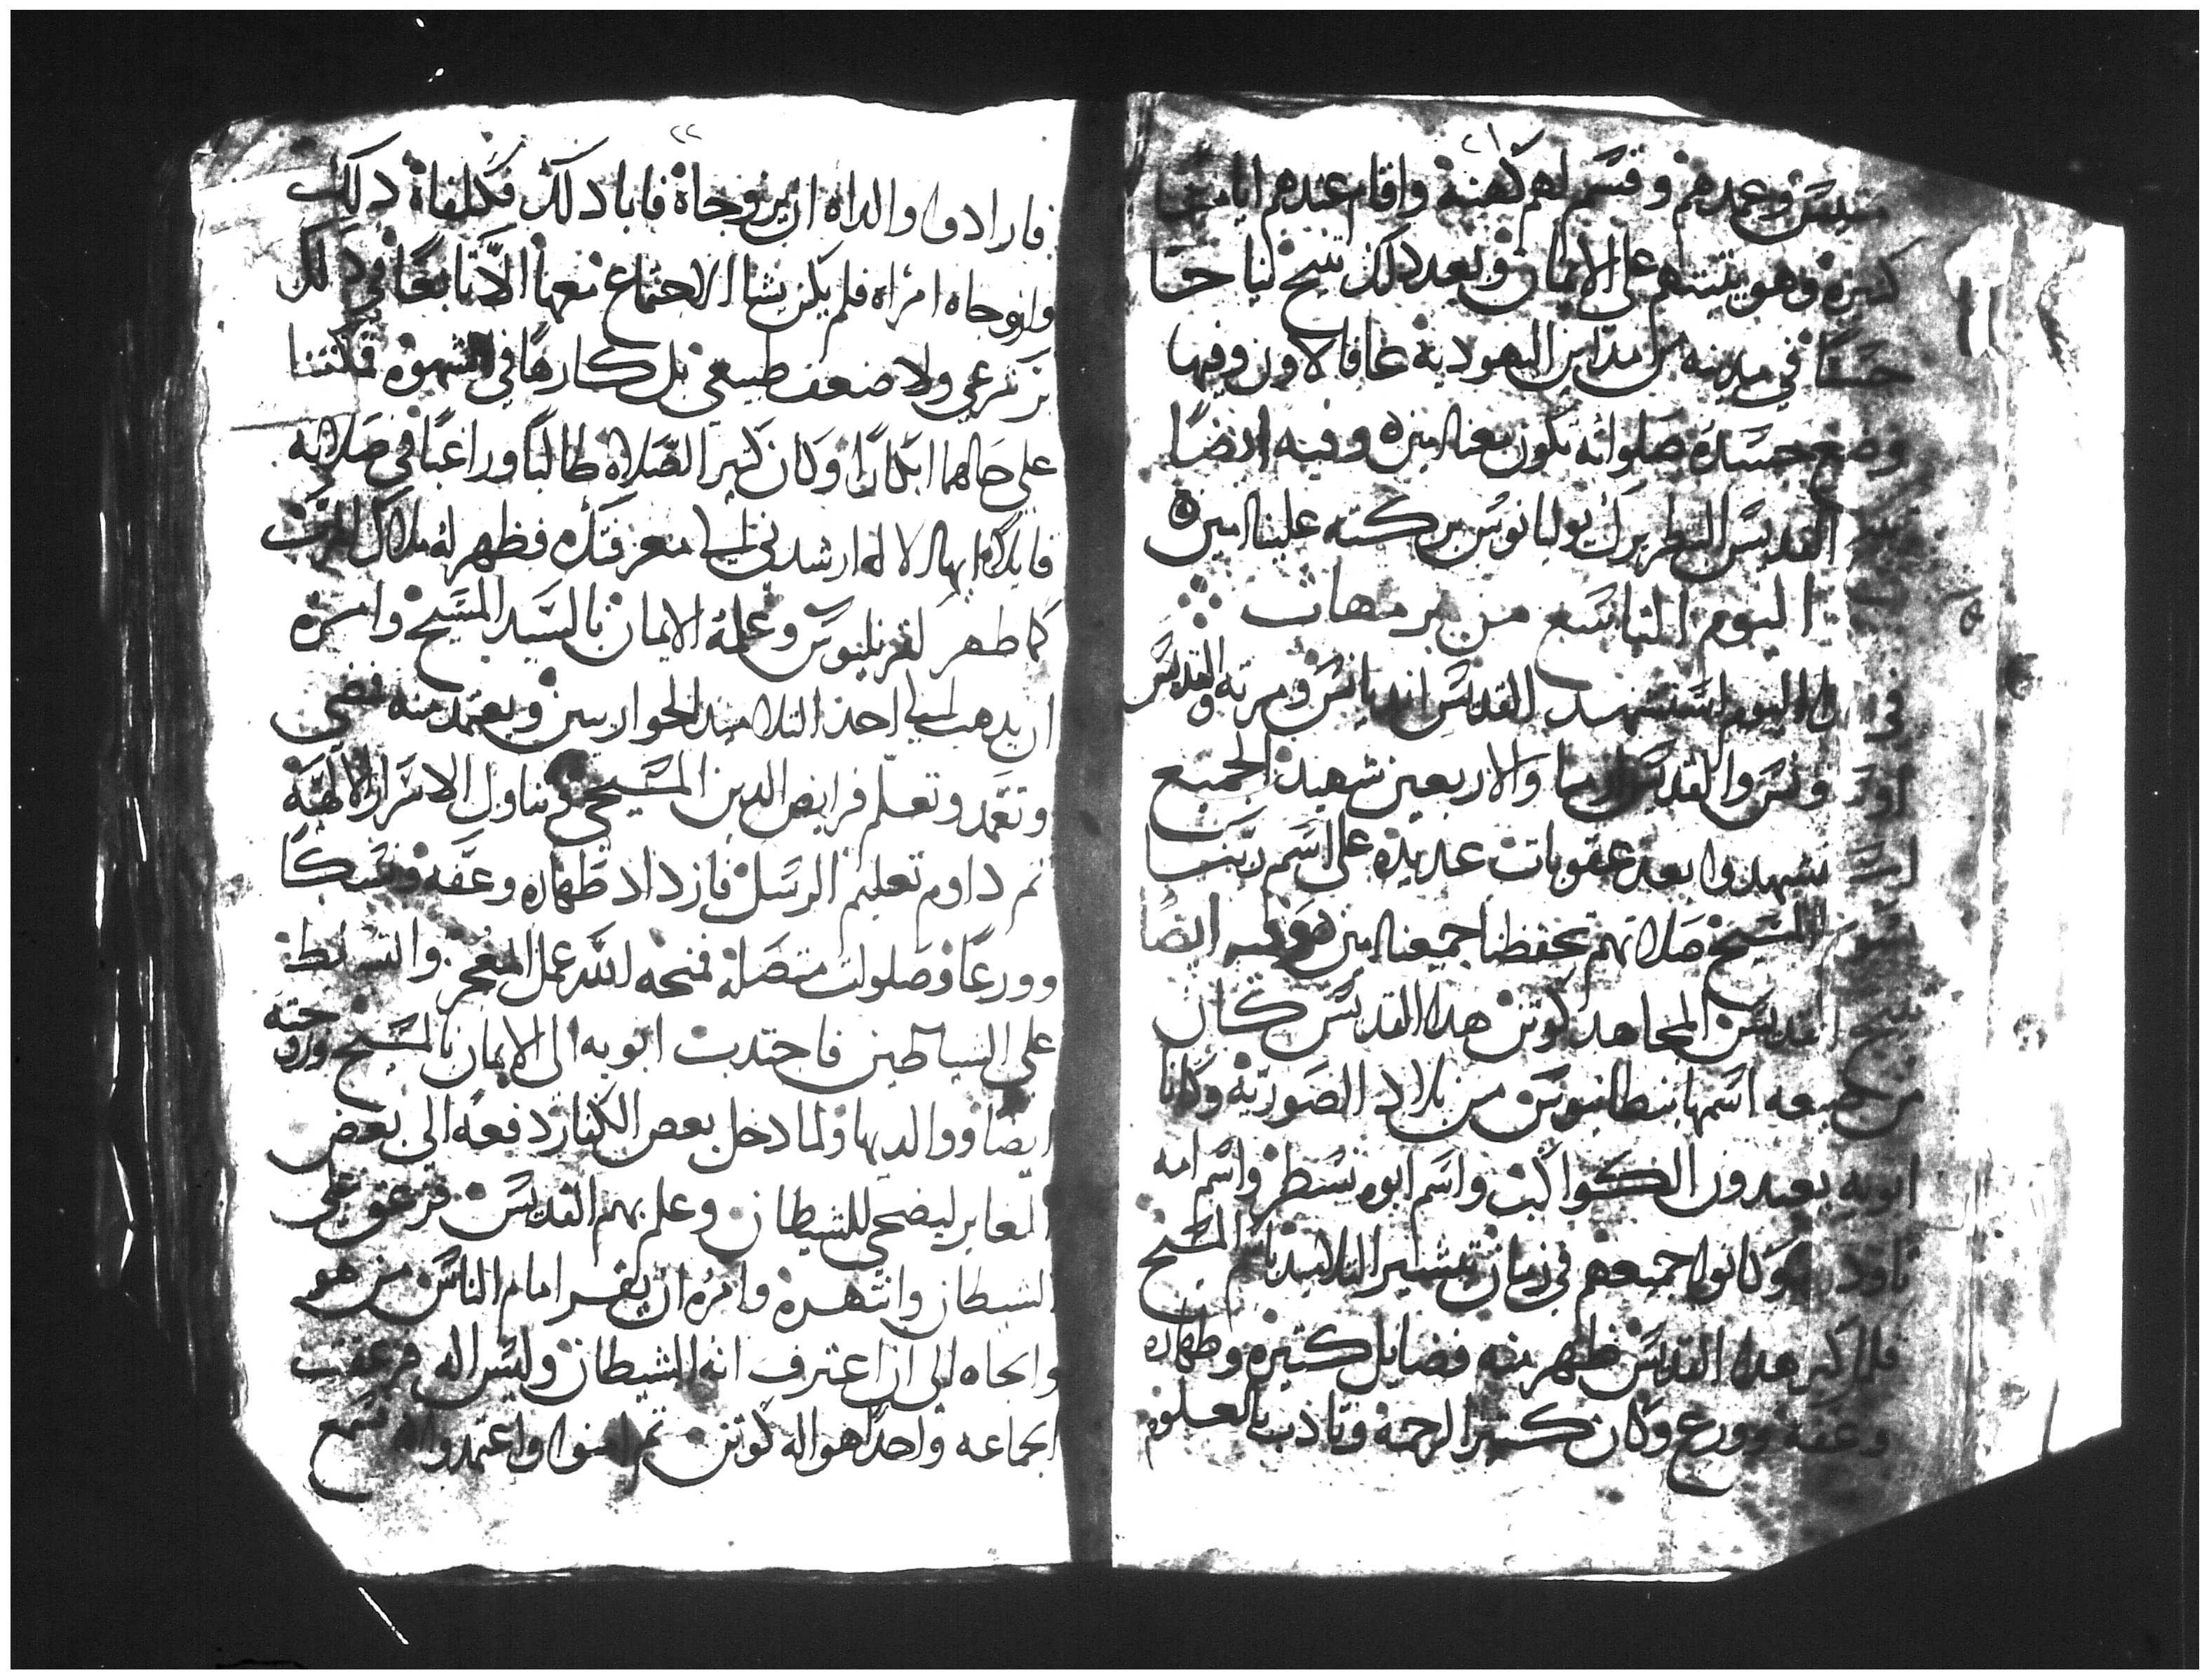 ٢١
وعمدهم وقسم لهم كهنة واقام عندهم اياما
كثيرة وهو يثبتهم على الايمان وبعد ذلك تنيح نياحا
حسنًا في مدينه من مداين اليهودية وفيها
وضع جسده صلواته تكون معنا امين وفيه ايضًا
القديس البطريرك يوليانوس بركته علينا امين
اليوم التاسع من برمهات
في اليوم استشهد القديس اندريانس ومرته والقديس
والقديس والاربعين شهيد الجميع
شهدوا بعد عقوبات عديده على اسم ربنا
المسيح صلاتهم تحفظنا جميعنا امين وفيه ايضًا
تنيح القديس المجاهد كونن هدا القديس كان
من ضيعه اسمها بنطانيوس من بلاد الصورية وكانا
ابويه يعبدون الكواكب واسم ابوه نسطر واسم امه
وكانوا جميعهم في زمان تبشير التلاميد المسيح
فلما كبر هدا القديس ظهر منه فضايل كتيره وطهاره
وعفة وورع وكان كتير الرحمة وتاذب بالعلوم
٢٢
فارادوا والداه ان يزوجاة فابا دلك فكلفاة دلك
وازوجاه امراه فلم يكن يشا الاجتماع معها لا تابعًا في دلك
ولا ضعف طبيعي بل كارهًا في الشهوه فمكتنا
على حالهما ابكارًا وكان كتير الصلاه طالبًا وراغبًا في صلاته
قايلا ايها الالاه ارشدني الى معرفتك فظهر له ملاك الرب
كما ظهر لقرنليوس وعلمة الايمان بالسيد المسيح وامره
ان يدهب الى احد التلاميد الحواريين ويعتمد منه فمضى
وتعمد وتعلم فرايض الدين المسيحي وتناول الاسرار الالهية
تم داوم تعليم الرسل فازداد طهاره وعفة ونسكًا
وورعًا وصلوات متصلة فمنحه الله عمل المعجز والتسلط
على الشياطين فاجتدب ابويه الى الايمان بالمسيح وزوجته
ايضًا ووالديها ولما دخل بعض الكفار دفعه الى بعض
المغاير ليضحى للشيطان وعلم بهم القديس فزعق على
الشيطان وانتهره وامره ان يقر امام الناس من هو
والجاه الى ان اعترف انه الشيطان وليس اله فزعقت
الجماعه واحد هو اله كونن تم امنوا واعتمدوا سمع